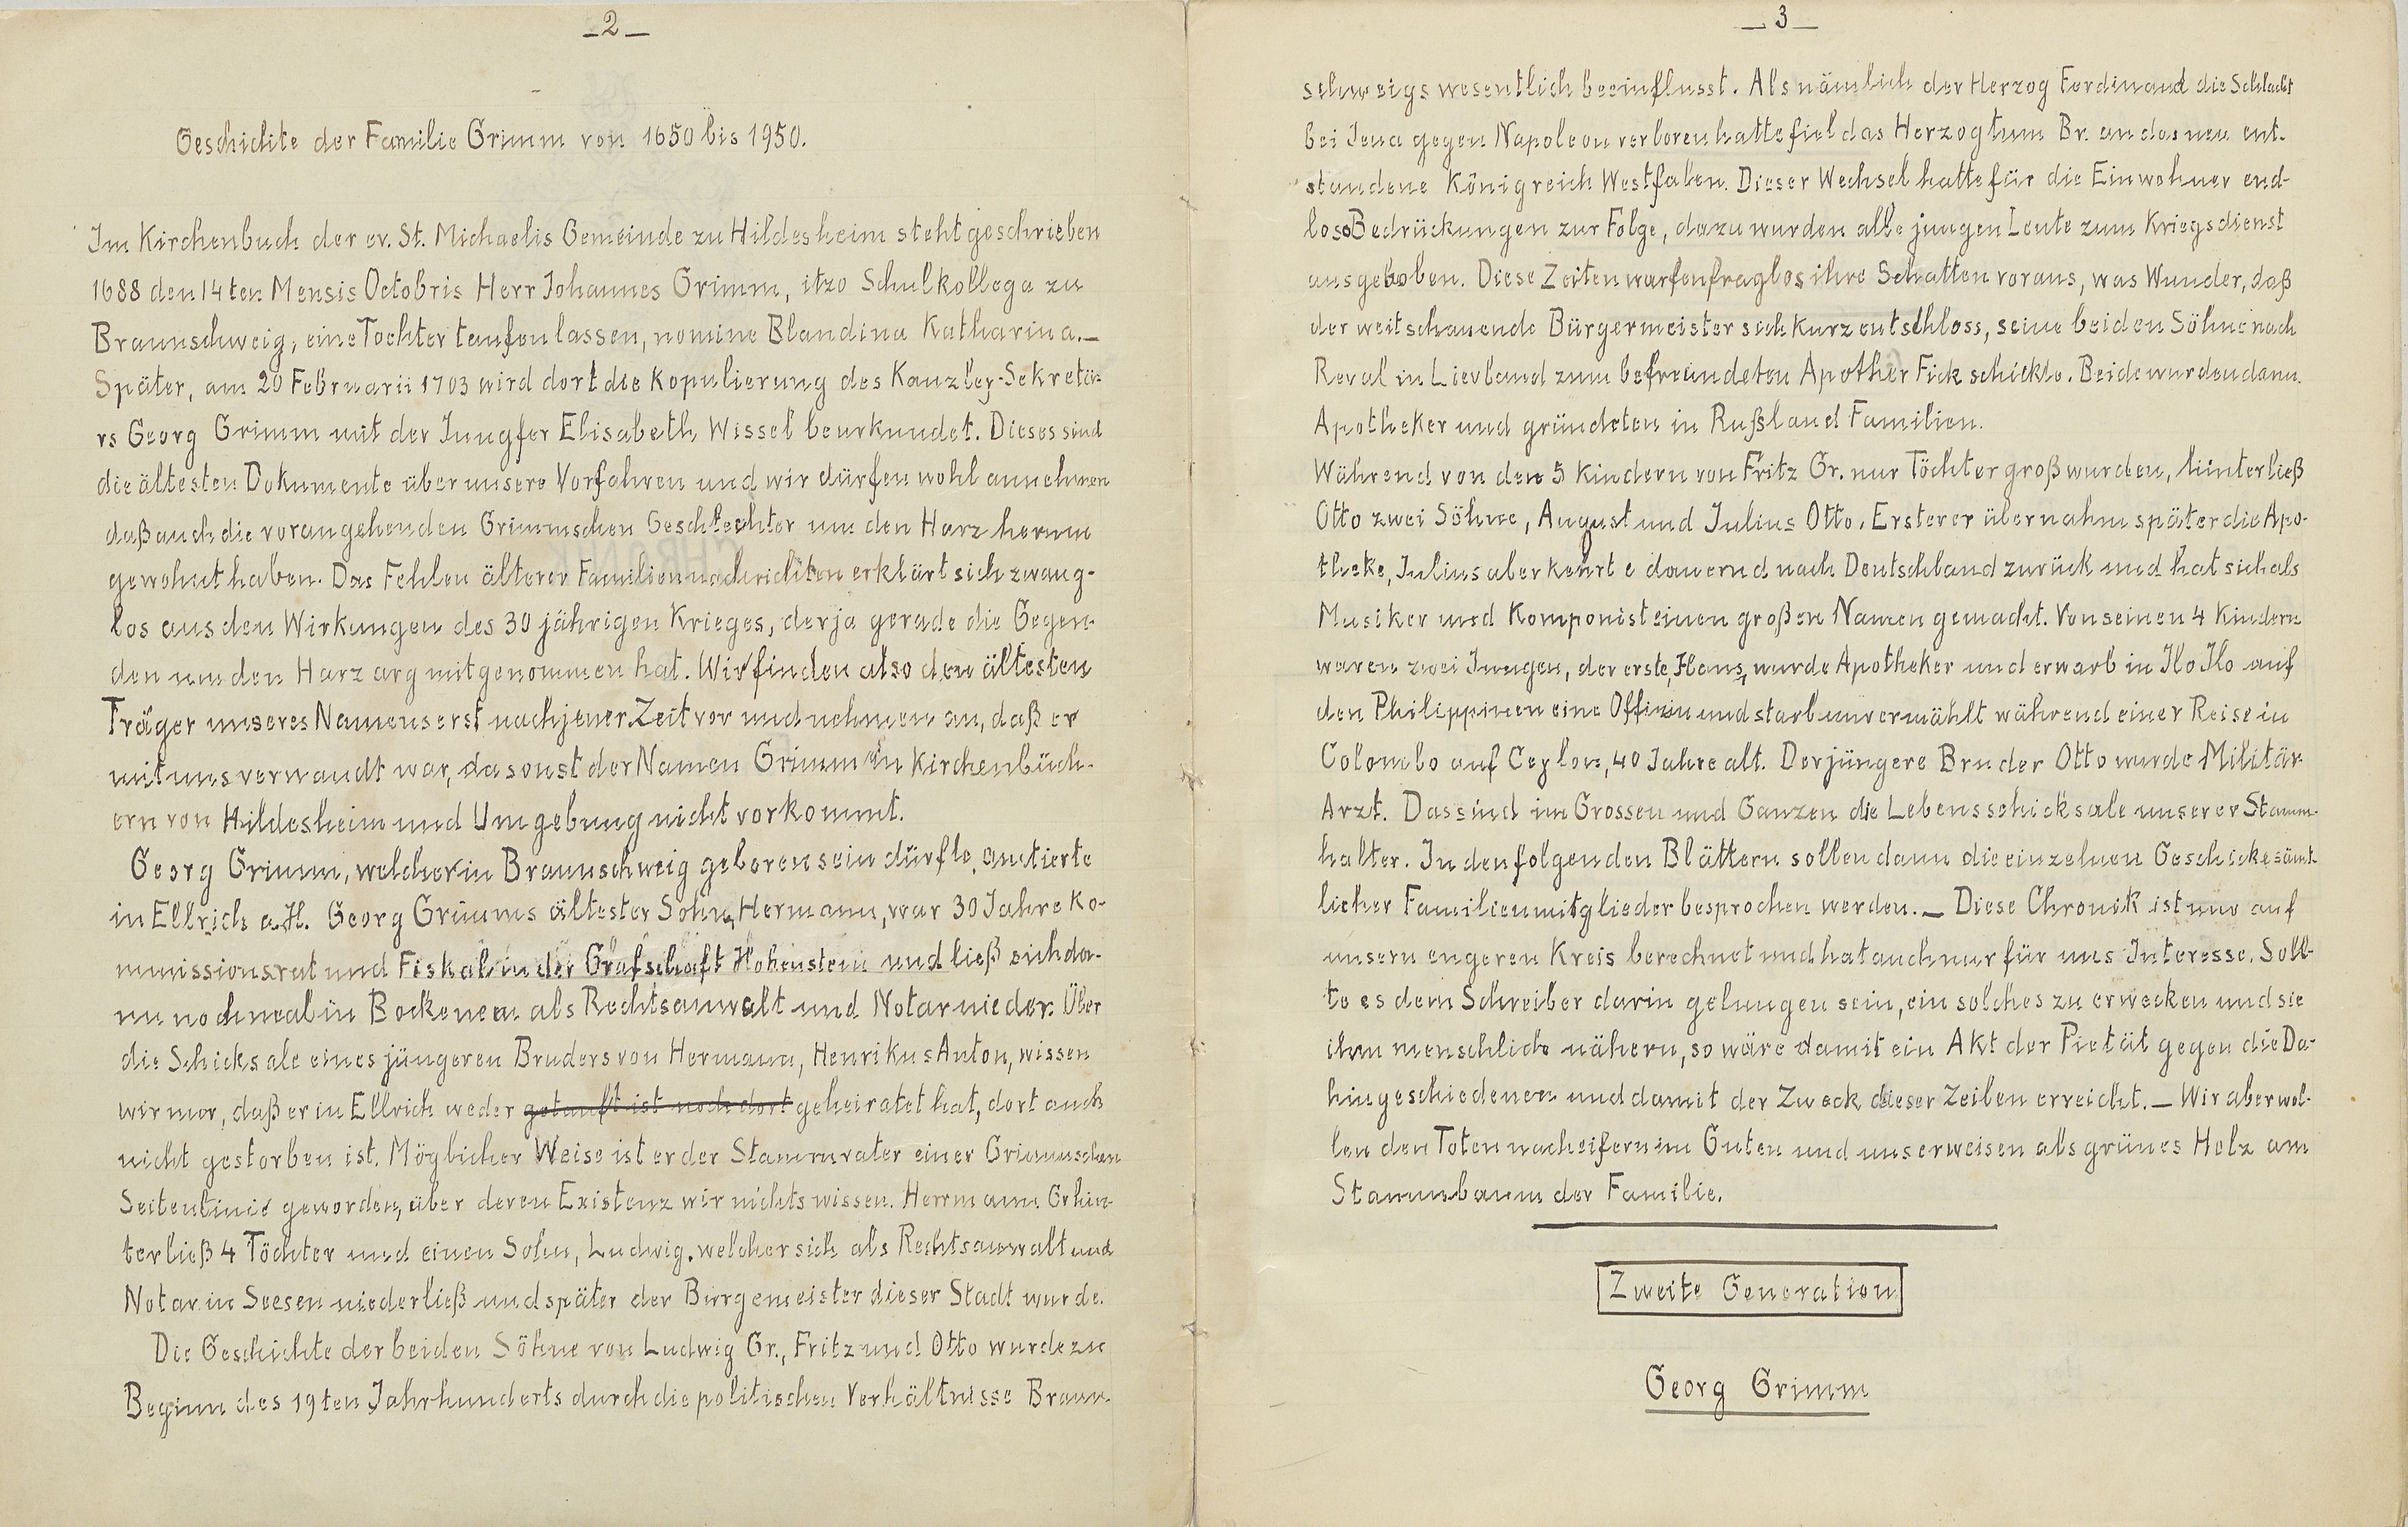 _2_
Geschichte der Familie Grimm von 1650 bis 1950.
Im Kirchenbuch der ev. St. Michaelis Gemeinde zu Hildesheim steht geschrieben
1688 den 14ten Mensis Octobris Herr Johannes Grimm, itzo Schulkollega zu
Braunschweig, eine Tochter taufen lassen, nomine Blandina Katharina._
Später, am 20 Februarii 1703 wird dort die Kopulierung des Kanzley-Sekretä-
rs Georg Grimm mit der Jungfer Elisabeth Wissel beurkundet. Dieses sind
die ältesten Dokumente über unsere Vorfahren und wir dürfen wohl annehmen
daß auch die vorangehenden Grimmschen Geschlechter um den Harz herum
gewohnt haben. Das Fehlen älterer Familiennachrichten erklärt sich zwang-
los aus den Wirkungen des 30 jährigen Krieges, der ja gerade die Gegen-
den um den Harz arg mitgenommen hat. Wir finden also den ältesten
Träger unseres Namens erst nach jener Zeit vor und nehmen an, daß er
mit uns verwandt war, da sonst der Namen Grimm in Kirchenbüch-
ern von Hildesheim und Umgebung nicht vorkommt.
Georg Grimm, welcher in Braunschweig geboren sein dürfte, amtierte
in Ellrich a.H. Georg Grimms ältester Sohn, Hermann, war 30 Jahre Ko-
mmissionsrat und Fiskal in der Grafschaft Hohenstein und ließ sich da-
nn nochmal in Bockenem als Rechtsanwalt und Notar nieder. Über
die Schicksale eines jüngeren Bruders von Hermann, Henrikus Anton, wissen
wir nur, daß er in Ellrich weder getauft ist noch dort geheiratet hat, dort auch
nicht gestorben ist. Möglicher Weise ist er der Stammvater einer Grimmschen
Seitenlinie geworden, über deren Existenz wir nichts wissen. Herrmann Gr hin-
terließ 4 Töchter und einen Sohn, Ludwig, welcher sich als Rechtsanwalt und
Notar in Seesen niederließ und später der Bürgemeister dieser Stadt wurde.
Die Geschichte der beiden Söhne von Ludwig Gr., Fritz und Otto wurde zu
Beginn des 19ten Jahrhunderts durch die politischen Verhältnisse Braun-
_3_
schweigs wesentlich beeinflusst. Als nämlich der Herzog Ferdinand die Schlacht
bei Jena gegen Napoleon verloren hatte fiel das Herzogtum Br. an das neu ent-
standene Königreich Westfalen. Dieser Wechsel hatte für die Einwohner end-
lose Bedrückungen zur Folge, dazu wurden alle jungen Leute zum Kriegsdienst
ausgehoben. Diese Zeiten warfen fraglos ihre Schatten voraus, was Wunder, daß
der weitschauende Bürgermeister sich kurz entschloss, seine beiden Söhne nach
Reval in Lievland zum befreundeten Apother Fick schickte. Beide wurden dann
Apotheker und gründeten in Rußland Familien.
Während von den 5 Kindern von Fritz Gr. nur Töchter groß wurden, hinterließ
Otto zwei Söhne, August und Julius Otto. Ersterer übernahm später die Apo-
theke, Julius aber kehrte dauernd nach Deutschland zurück und hat sich als
Musiker und Komponist einen großen Namen gemacht. Von seinen 4 Kindern
waren zwei Jungen, der erste, Hans, wurde Apotheker und erwarb in Jlo Jlo auf
den Philippinen eine Offizin und starb unvermählt während einer Reise in
Colombo auf Ceylon, 40 Jahre alt. Der jüngere Bruder Otto wurde Militär-
Arzt. Das sind im Grossen und Ganzen die Lebensschicksale unserer Stamm-
halter. In den folgenden Blättern sollen dann die einzelnen Geschicke sämt-
licher Familienmitglieder besprochen werden._ Diese Chronik ist nur auf
unsern engeren Kreis berechnet und hat auch nur für uns Interesse. Soll-
te es dem Schreiber darin gelungen sein, ein solches zu erwecken und sie
ihm menschlich nähern, so wäre damit ein Akt der Pietät gegen die Da-
hingeschiedenen und damit der Zweck dieser Zeilen erreicht._ Wir aber wol-
len den Toten nacheifern im Guten und uns erweisen als grünes Holz am
Stammbaum der Familie.
Zweite Generation
Georg Grimm